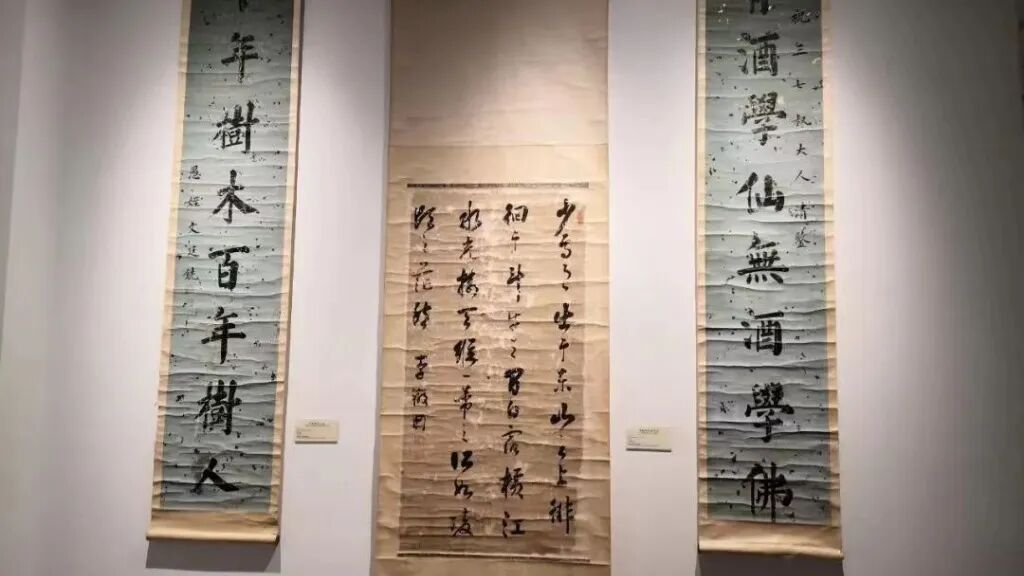 祝三七叔大人清鑒
有酒學仙無酒學佛
少焉月出于東山之上徘
徊于斗牛之間白露橫江
水光接天縱一葦之所如凌
頃之茫然
年樹木百年樹人
愚姪文廷